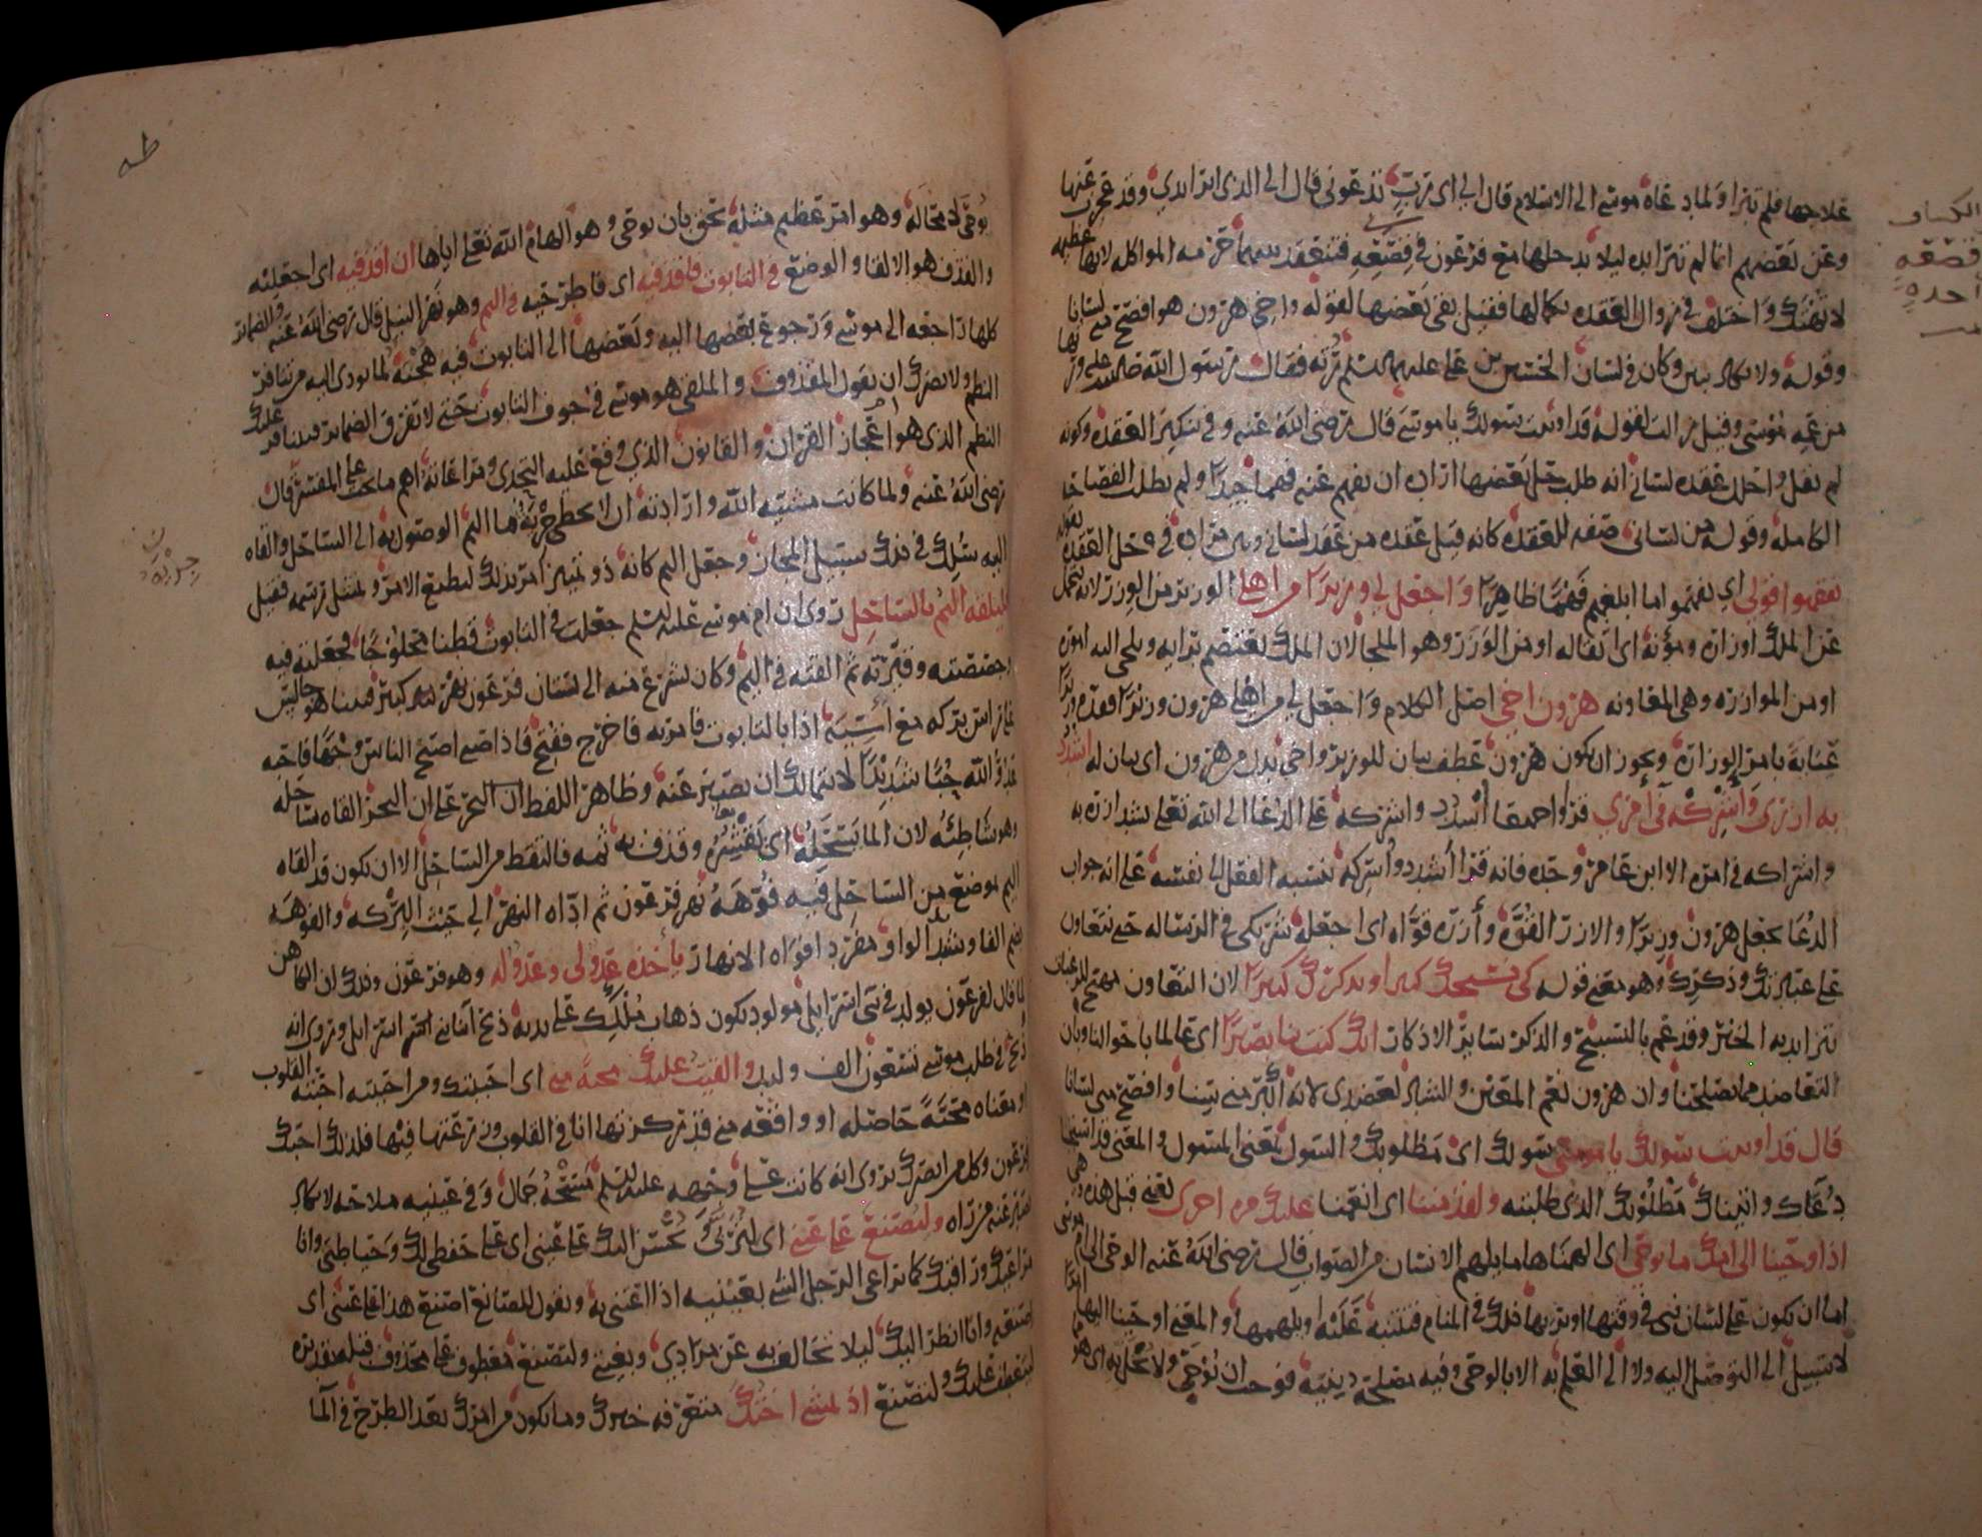 علاجها فلم تبرا ولما دعاه موسى الى الاسلام قال الى اى رب تدعونى قال الى الذى ابرا يدي وقد عجزت عنها
وعن بعضهم انما لم تبرا يده ليلا يدخلها مع فرعون في قصعة فتنعقد بينهما حرمه المواكله لانها عظيمه
لا تهتك واختلف فى زوال العقده بكمالها فقيل بقى بعضها لقوله واخى هرون هو افصح مني لسانا
وقوله ولا يكاد يبين وكان فى لسان الحسين بن على عليهما السلم رتة فقال رسول الله صلى الله عليه ورثها
من عمه موسى وقيل زالت لقوله قد اوتيت سولك يا موسى قال رضى الله عنه وفى تنكير العقده وكونه
لم يقل واحلل عقده لسانى انه طلب حل بعضها ارادة ان يفهم عنه فهما جيدا ولم يطلب الفصاحة
الكامله وقوله من لسانى صفه للعقده كانه قيل عقده من عقد لسانى
يفقهوا قولي اي يفهموا ما ابلغهم فهما ظاهرا واجعل لي وزيرا من اهلى الوزير من الوزر لانه يتحمل
عن الملك اوزاره ومؤنه اى اثقاله او من الوزر وهو الملجا لان الملك يعتصم برايه ويلجى اليه اموره
او من الموازره وهى المعاونه هرون اخي اصل الكلام واجعل لي من اهلى هرون وزيرا فقدم وزيرا
عناية بامر الوزارة ويجوز ان يكون هرون عطف بيان للوزير واخى بدل من هرون اى بيان له اشدد
به ازرى وأشركه في أمري قروا جميعا اشدد واشركه على الدعا الى الله تعلى بشد ازره به
واشراكه فى امره الا ابن عامر وحده فانه قرا أشدد وأشركه بنسبه الفعل الى نفسه على انه جواب
الدعا بجعل هرون وزيرا والازر القوة وأزره قواه اى اجعله شريكى فى الرساله حتى نتعاون
على عبادتك وذكرك وهو معنى قوله كى نسبحك كثيرا ونذكرك كثيرا لان التعاون مهيج للرغبات
يتزايد به الخير وقد عم بالتسبيح والذكر ساير الاذكار انك كنت بنا بصيرا اى عالما باحوالنا وبان
التعاضد مما يصلحنا وان هرون نعم المعين والشاد لعضدى لانه اكبر مني سنا وافصح مني لسانا
قال قد اوتيت سولك يا موسى سولك اى مطلوبك والسول بمعنى المسول والمعنى قد استجبنا
دعاك واتيناك مطلوبك الذى طلبته ولقد مننا اى انعمنا عليك مره اخرى يعنى قبل هذه وهى
اذ اوحينا الى امك ما يوحى اى الهمناها ما يلهم الانسان من الصواب قال رضى الله عنه الوحى الى ام موسى
اما ان يكون على لسان نبى فى وقتها او يريها ذلك فى المنام فتتنبه عليه او يلهمها والمعنى اوحينا اليها امرا
لا سبيل الى التوصل اليه ولا الى العلم به الا بالوحى وفيه مصلحة دينية فوجب ان يوحى ولا يخل به اى هو مما
الكشاف
قصعة
واحدة
طه
يوحى لا محاله وهو امر عظيم مثله يحق بان يوحى وهو الهام الله تعلى اياها ان اقذفيه اى اجعليه
والقذف هو الالقا والوضع في التابوت فاقذفيه اى فاطرحيه في اليم وهو نهر النيل قال رضى الله عنه والضمائر
كلها راجعه الى موسى ورجوع بعضها اليه وبعضها الى التابوت فيه هجنه لما يودى اليه من تنافر
النظم ولا يضرك ان يقول المقذوف والملقى هو موسى فى جوف التابوت حتى لا تفرق الضماير فيتنافر عليك
النظم الذى هو اعجاز القران والقانون الذي وقع عليه التحدى ومراعاته اهم ما يجب على المفسر قال
رضى الله عنه ولما كانت مشيه الله وارادته ان لا يخطى جرية ما اليم الوصول به الى الساحل والقاه
اليه سلك فى ذلك سبيل المجاز وجعل اليم كانه ذو تمييز امر بذلك ليطيع الامر ويمتثل رسمه فقيل
فليلقه اليم بالساحل روى ان ام موسى عليه السلم جعلت فى التابوت قطنا محلوجا فجعلته فيه
وجصصته وقيرته ثم القته فى اليم وكان يشرع منه الى بستان فرعون نهر كبير فبينا هو جالس
على راس بركه مع آسية اذا بالتابوت فامر به فاخرج ففتح فاذا صبى اصبح الناس وجها فاحبه
عدو الله حبا شديدا لا يتمالك ان يصبر عنه وظاهر اللفظ ان البحر القاه بساحله
وهو شاطئه لان الما يسحله اى يقشره وقذف به ثمه فالتقط من الساحل الا ان يكون قد القاه
اليم بموضع من الساحل فيه فوهة نهر فرعون ثم اداه النهر الى حيث البركه والفوهة
بضم الفا وشد الواو مفرد افواه الانهار يأخذه عدو لى وعدو له وهو فرعون وذلك ان الكاهن
لما قال لفرعون يولد فى بنى اسرايل مولود يكون ذهاب ملكك على يديه ذبح ابنا بنى اسرايل وروى انه
ذبح فى طلب موسى تسعون الف وليد والقيت عليك محبة منى اى احببتك ومن احببته احبته القلوب
او معناه محبة حاصله او واقعه منى قد ركزتها انا فى القلوب وزرعتها فيها فلذلك احبك
فرعون وكل من ابصرك روى انه كانت على وجهه عليه السلم مسحة جمال وفى عينيه ملاحه لا يكاد
يصبر عنه من راه ولتصنع على عينى اى لتربى ويحسن اليك على عينى اى على حفظى لك وحياطتى وانا
مراعيك وراقبك كما يراعى الرجل الشى بعينيه اذا اعتنى به وتقول للصانع اصنع هذا على عينى اى
اصنعه وانا انظر اليك ليلا تخالف به عن مرادي وبغيتى ولتصنع معطوف على محذوف قبله تقديره
ليتعطف عليك ولتصنع اذ تمشى اختك متعرفه خبرك وما يكون من امرك بعد الطرح فى الما
جريه